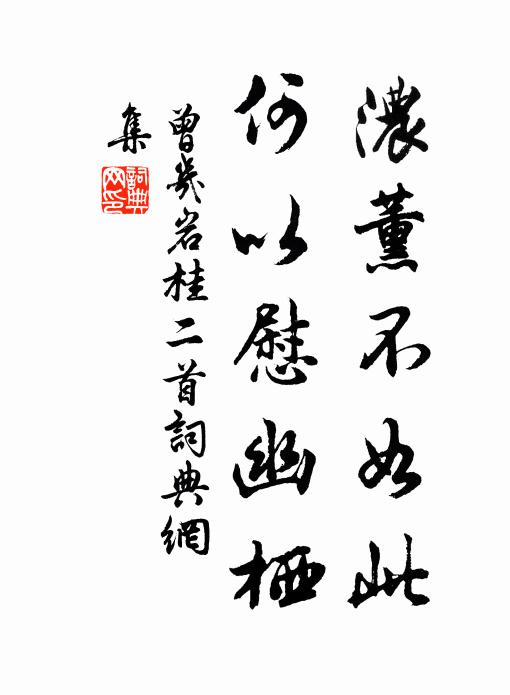 濃薰不如此
何以慰幽栖
曾幾岩桂二首詞典網
集
詞典
网印